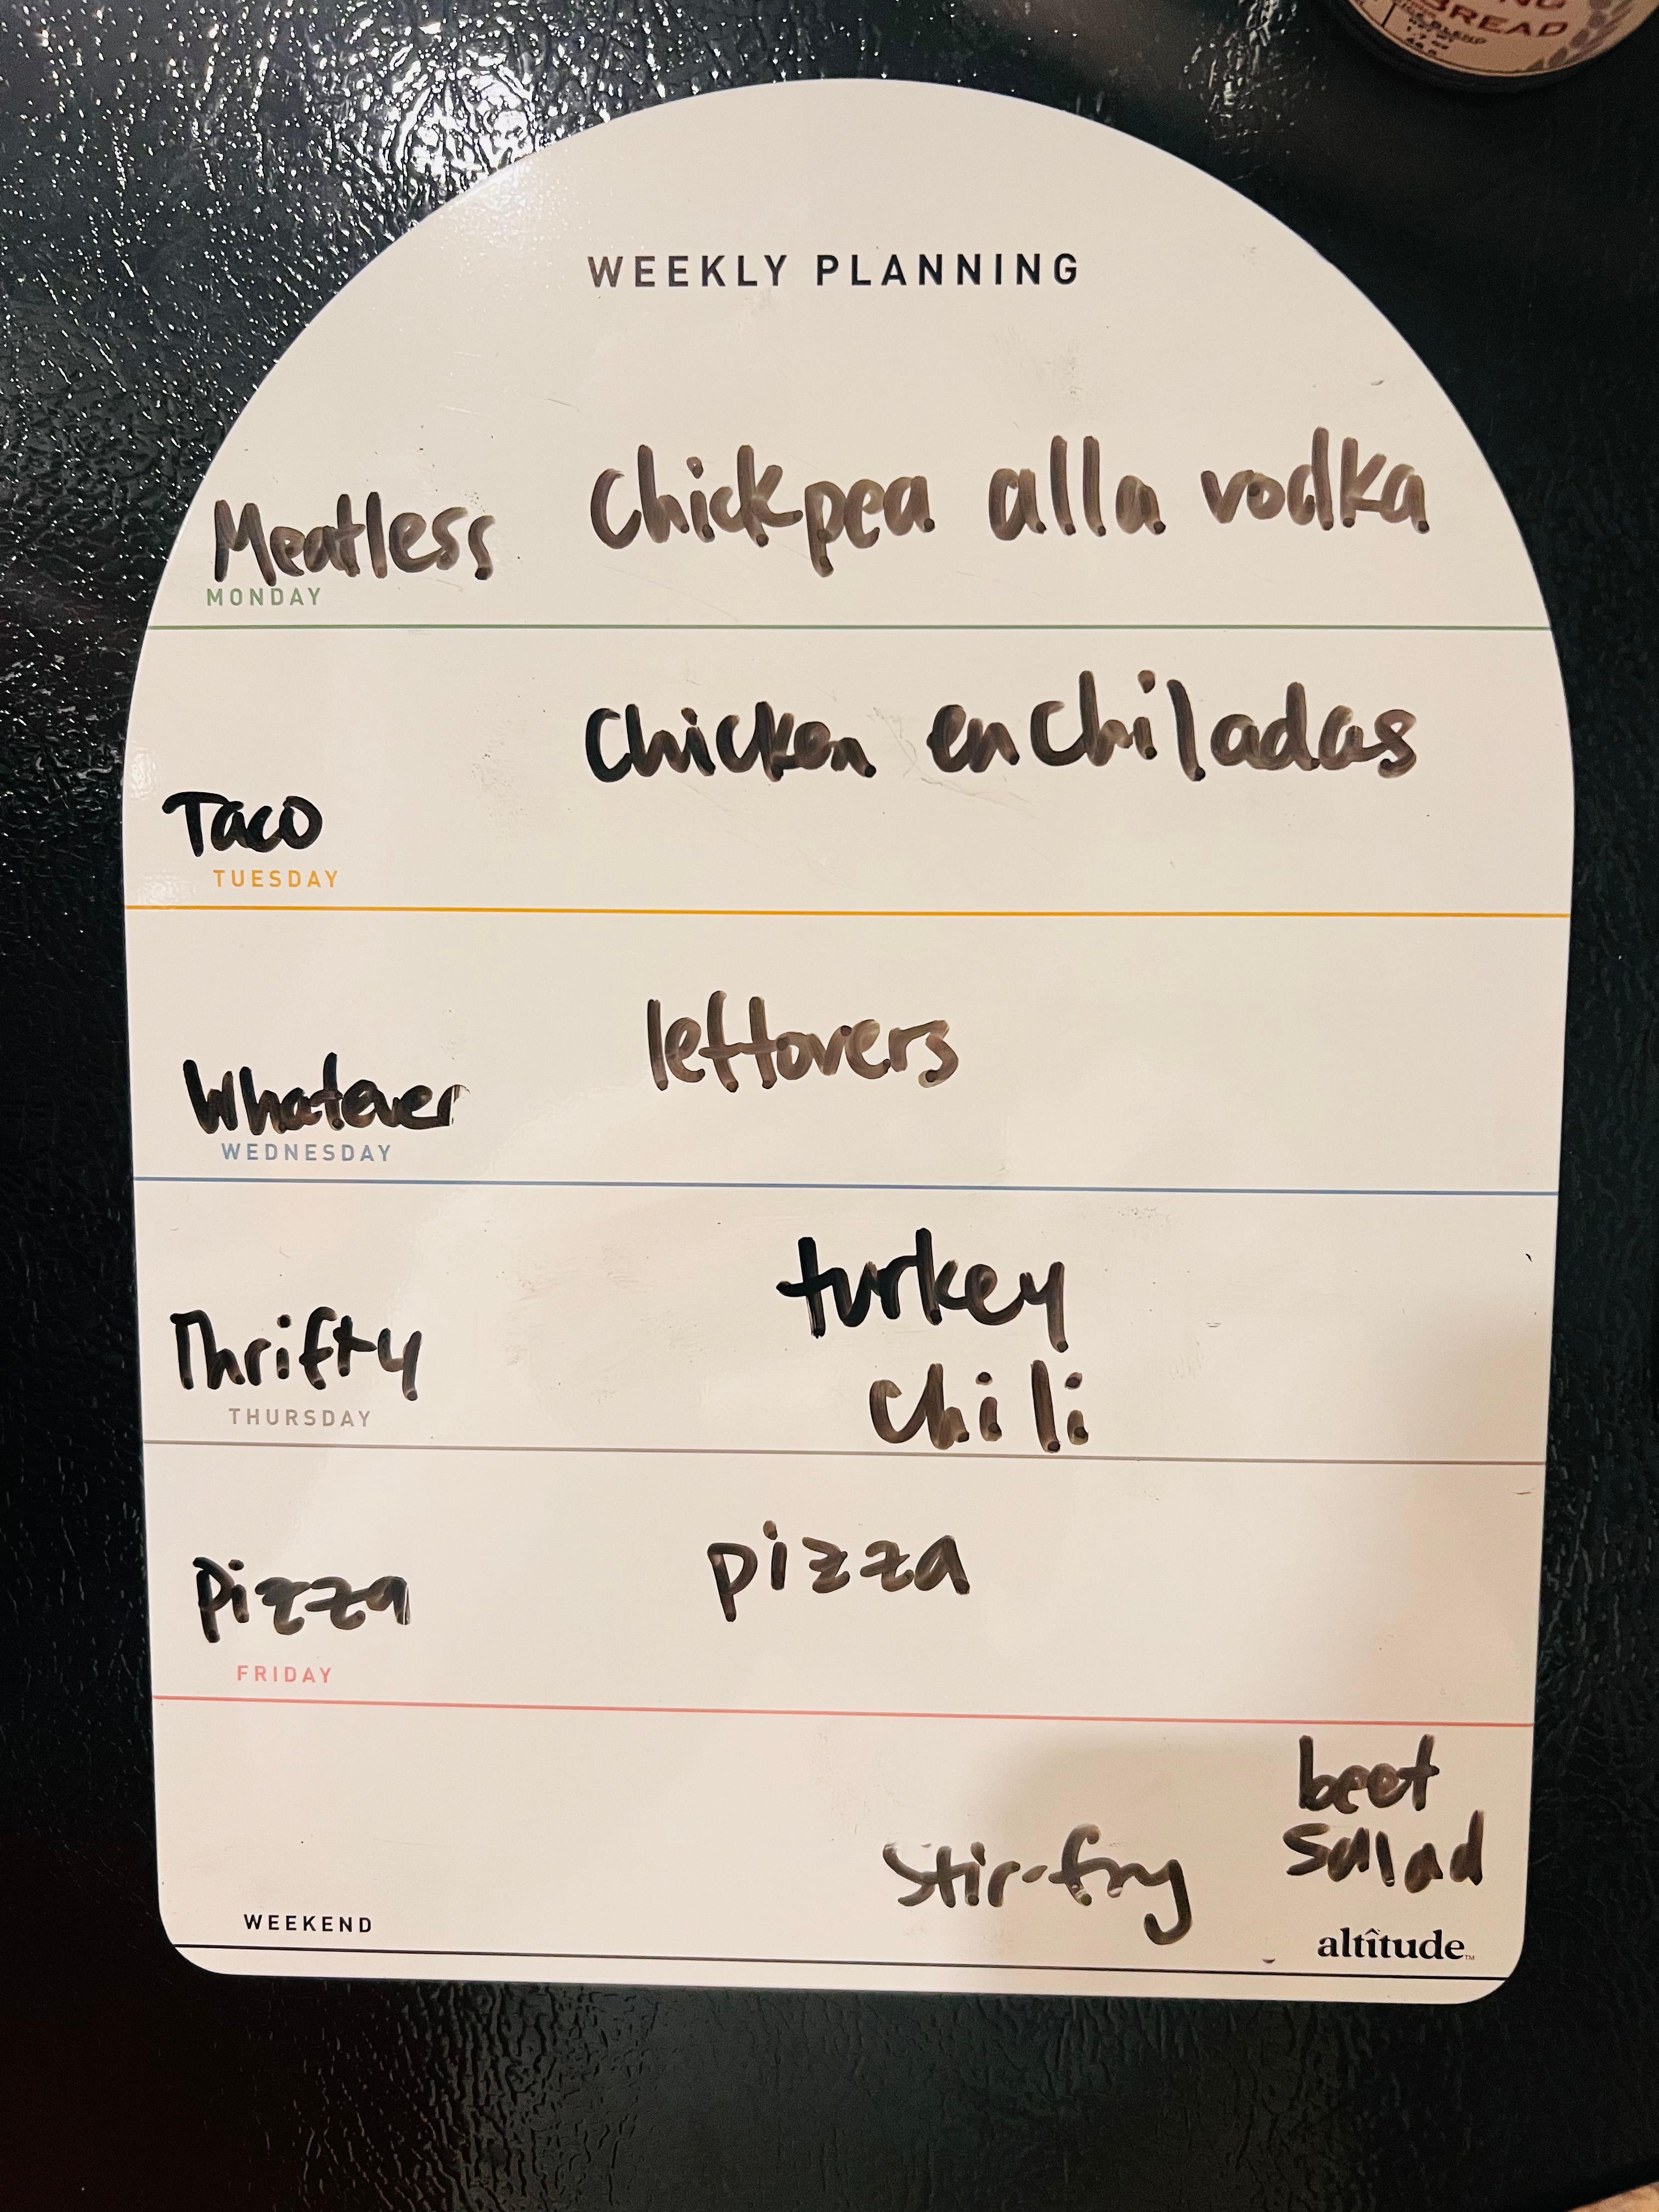 NG
BREAD
WEEKLY PLANNING
Meatless Chickpea alla vodka
MONDAY
Chicken enchiladas
Taco
TUESDAY
leftovers
Whatever
WEDNESDAY
turkey
Thrifty chili
THURSDAY
pizza
Pizza
FRIDAY
beet
salad
Stir-fry
WEEKEND
altîtude™